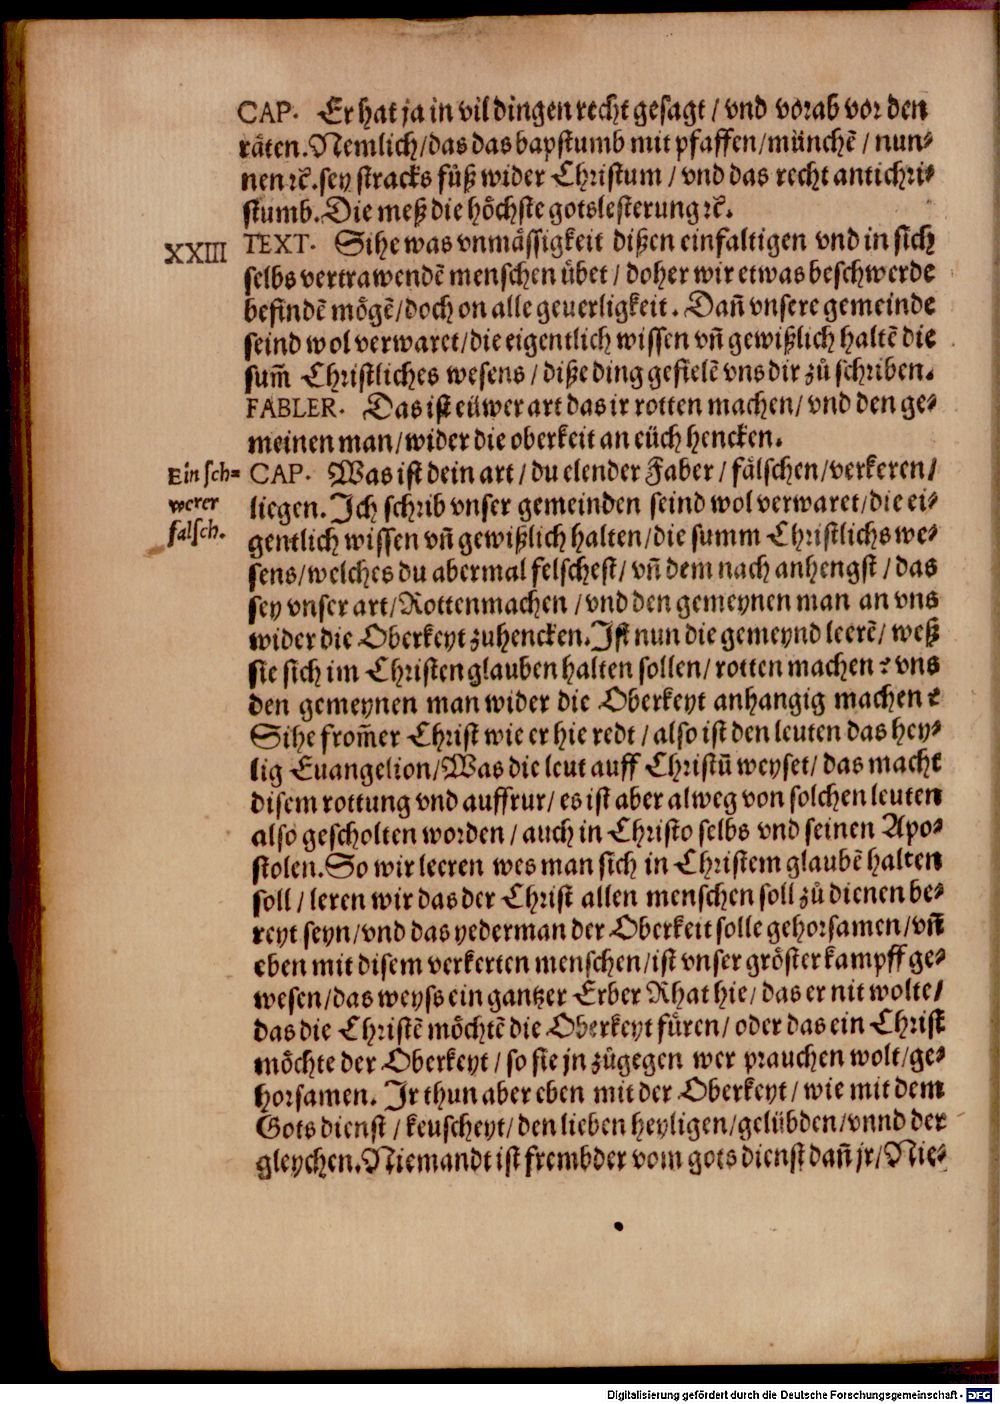 CAP. Er hat ja in vil dingen recht gesagt / vnd vorab vor den
räten. Nemlich/das das bapstumb mit pfaffen/münchē / nun⸗
nen ⁊c̄. sey stracks füß wider Christum / vnd das recht antichri⸗
stumb. Die meß die höchste gotslesterung ⁊c̄.
XXIII TEXT. Sihe was vnmässigkeit dißen einfaltigen vnd in sich
selbs vertrawendē menschen übet / doher wir etwas beschwerde
befindē mögē/doch on alle geuerligkeit. Dan̄ vnsere gemeinde
seind wol verwaret/die eigentlich wissen vn̄ gewißlich haltē die
sum̄ Christliches wesens / diße ding gefielē vns dir zů schriben.
FABLER. Das ist eüwer art das ir rotten machen/ vnd den ge⸗
meinen man/wider die oberkeit an eüch hencken.
Ein sch⸗
werer
falsch.
CAP. Was ist dein art / du elender Faber / fälschen/verkeren/
liegen. Ich schrib vnser gemeinden seind wol verwaret/die ei⸗
gentlich wissen vn̄ gewißlich halten/die summ Christlichs we⸗
sens/welches du abermal felschest/ vn̄ dem nach anhengst / das
sey vnser art/Rottenmachen /vnd den gemeynen man an vns
wider die Oberkeyt zuhencken. Ist nun die gemeynd leerē/ weß
sie sich im Christen glauben halten sollen/ rotten machen? vns
den gemeynen man wider die Oberkeyt anhangig machen?
Sihe from̄er Christ wie er hie redt / also ist den leuten das hey⸗
lig Euangelion/Was die leut auff Christū weyset/ das macht
disem rottung vnd auffrur/ es ist aber alweg von solchen leuten
also gescholten worden / auch in Christo selbs vnd seinen Apo⸗
stolen. So wir leeren wes man sich in Christem glaubē halten
soll / leren wir das der Christ allen menschen soll zů dienen be⸗
reyt seyn/vnd das yederman der Oberkeit solle gehorsamen/vn̄
eben mit disem verkerten menschen/ist vnser gröster kampff ge⸗
wesen/das weyss ein gantzer Erber Rhat hie/ das er nit wolte/
das die Christē möchtē die Oberkeyt füren/ oder das ein Christ
möchte der Oberkeyt / so sie jn zůgegen wer prauchen wolt/ge⸗
horsamen. Ir thun aber eben mit der Oberkeyt / wie mit dem
Gots dienst / keuscheyt/ den lieben heyligen/gelübden/vnnd der
gleychen. Niemandt ist frembder vom gots dienst dan̄ jr/Nie⸗
Digitalisierung gefördert durch die Deutsche Forschungsgemeinschaft - DFG